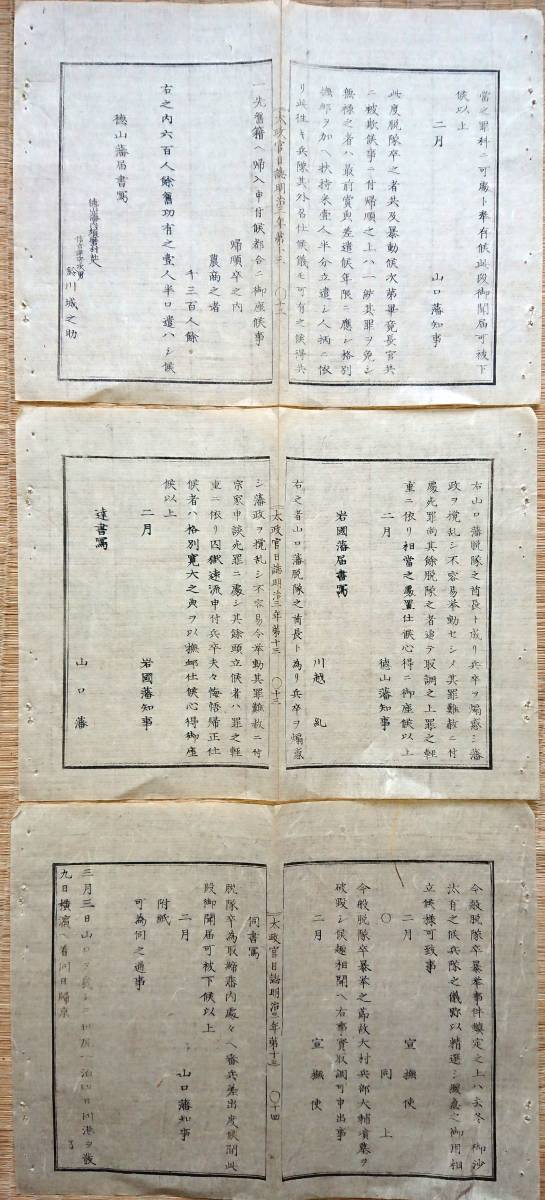 當之罪科ニ可處ト奉存候此段御聞届可被下
候以上
二月
山口藩知事
此度脱隊卒之者共及暴動候次第畢竟長官共
ニ被欺候事ニ付帰順之上ハ一紙其罪ヲ免シ
無禄之者ハ最前賞典差遣候年限ニ應シ格別
撫卹ヲ加ヘ扶持米壹人半分立遣シ人柄ニ依
リ此往キ兵隊其外名仕候儀モ可有之候得共
太政官日誌明治三年第十三
〇十二
一先舊籍ヘ帰入申付候都合ニ御座候事
帰順卒之内
農商之者
千三百人餘
右之内六百人餘舊功有之壹人半口遣ハシ候
徳山藩届書寫
鈴川城之助
右山口藩脱隊之酋長ト成リ兵卒ヲ煽惑シ藩
政ヲ攪乱シ不容易挙動セシメ其罪難赦ニ付
處死罪尚其餘脱隊之者追テ取調之上罪之軽
重ニ依リ相當之處置仕候心得ニ御座候以上
二月
徳山藩知事
岩國藩届書寫
川越 乱
右之者山口藩脱隊之酋長ト為リ兵卒ヲ煽惑
太政官日誌明治三年第十三
〇十三
シ藩政ヲ攪乱シ不容易令挙動其罪難赦ニ付
宗家申談死罪ニ處シ其餘頭立候者ハ罪之軽
重ニ依リ囚獄遠流申付兵卒夫々悔悟帰正仕
候者ハ格別寛大之典ヲ以撫卹仕候心得御座
候以上
二月
岩國藩知事
達書寫
山口藩
今般脱隊卒暴挙事件鎮定之上ハ去冬御沙
汰有之候兵隊之儀跡以精選シ緩急之御用相
立候様可致事
二月
宣撫使
〇
同上
今般脱隊卒暴挙之節故大村兵部大輔墳墓ヲ
破毀シ候趣相聞ヘ右事實取調可申出事
二月
宣撫使
太政官日誌明治三年第十三
〇十四
伺書寫
脱隊卒為取締藩内處々ヘ番兵差出度候間此
段御聞届可被下候以上
二月
山口藩知事
附紙
可為伺之通事
三月三日山口ヲ發シ
九日横濱ヘ着同日歸京